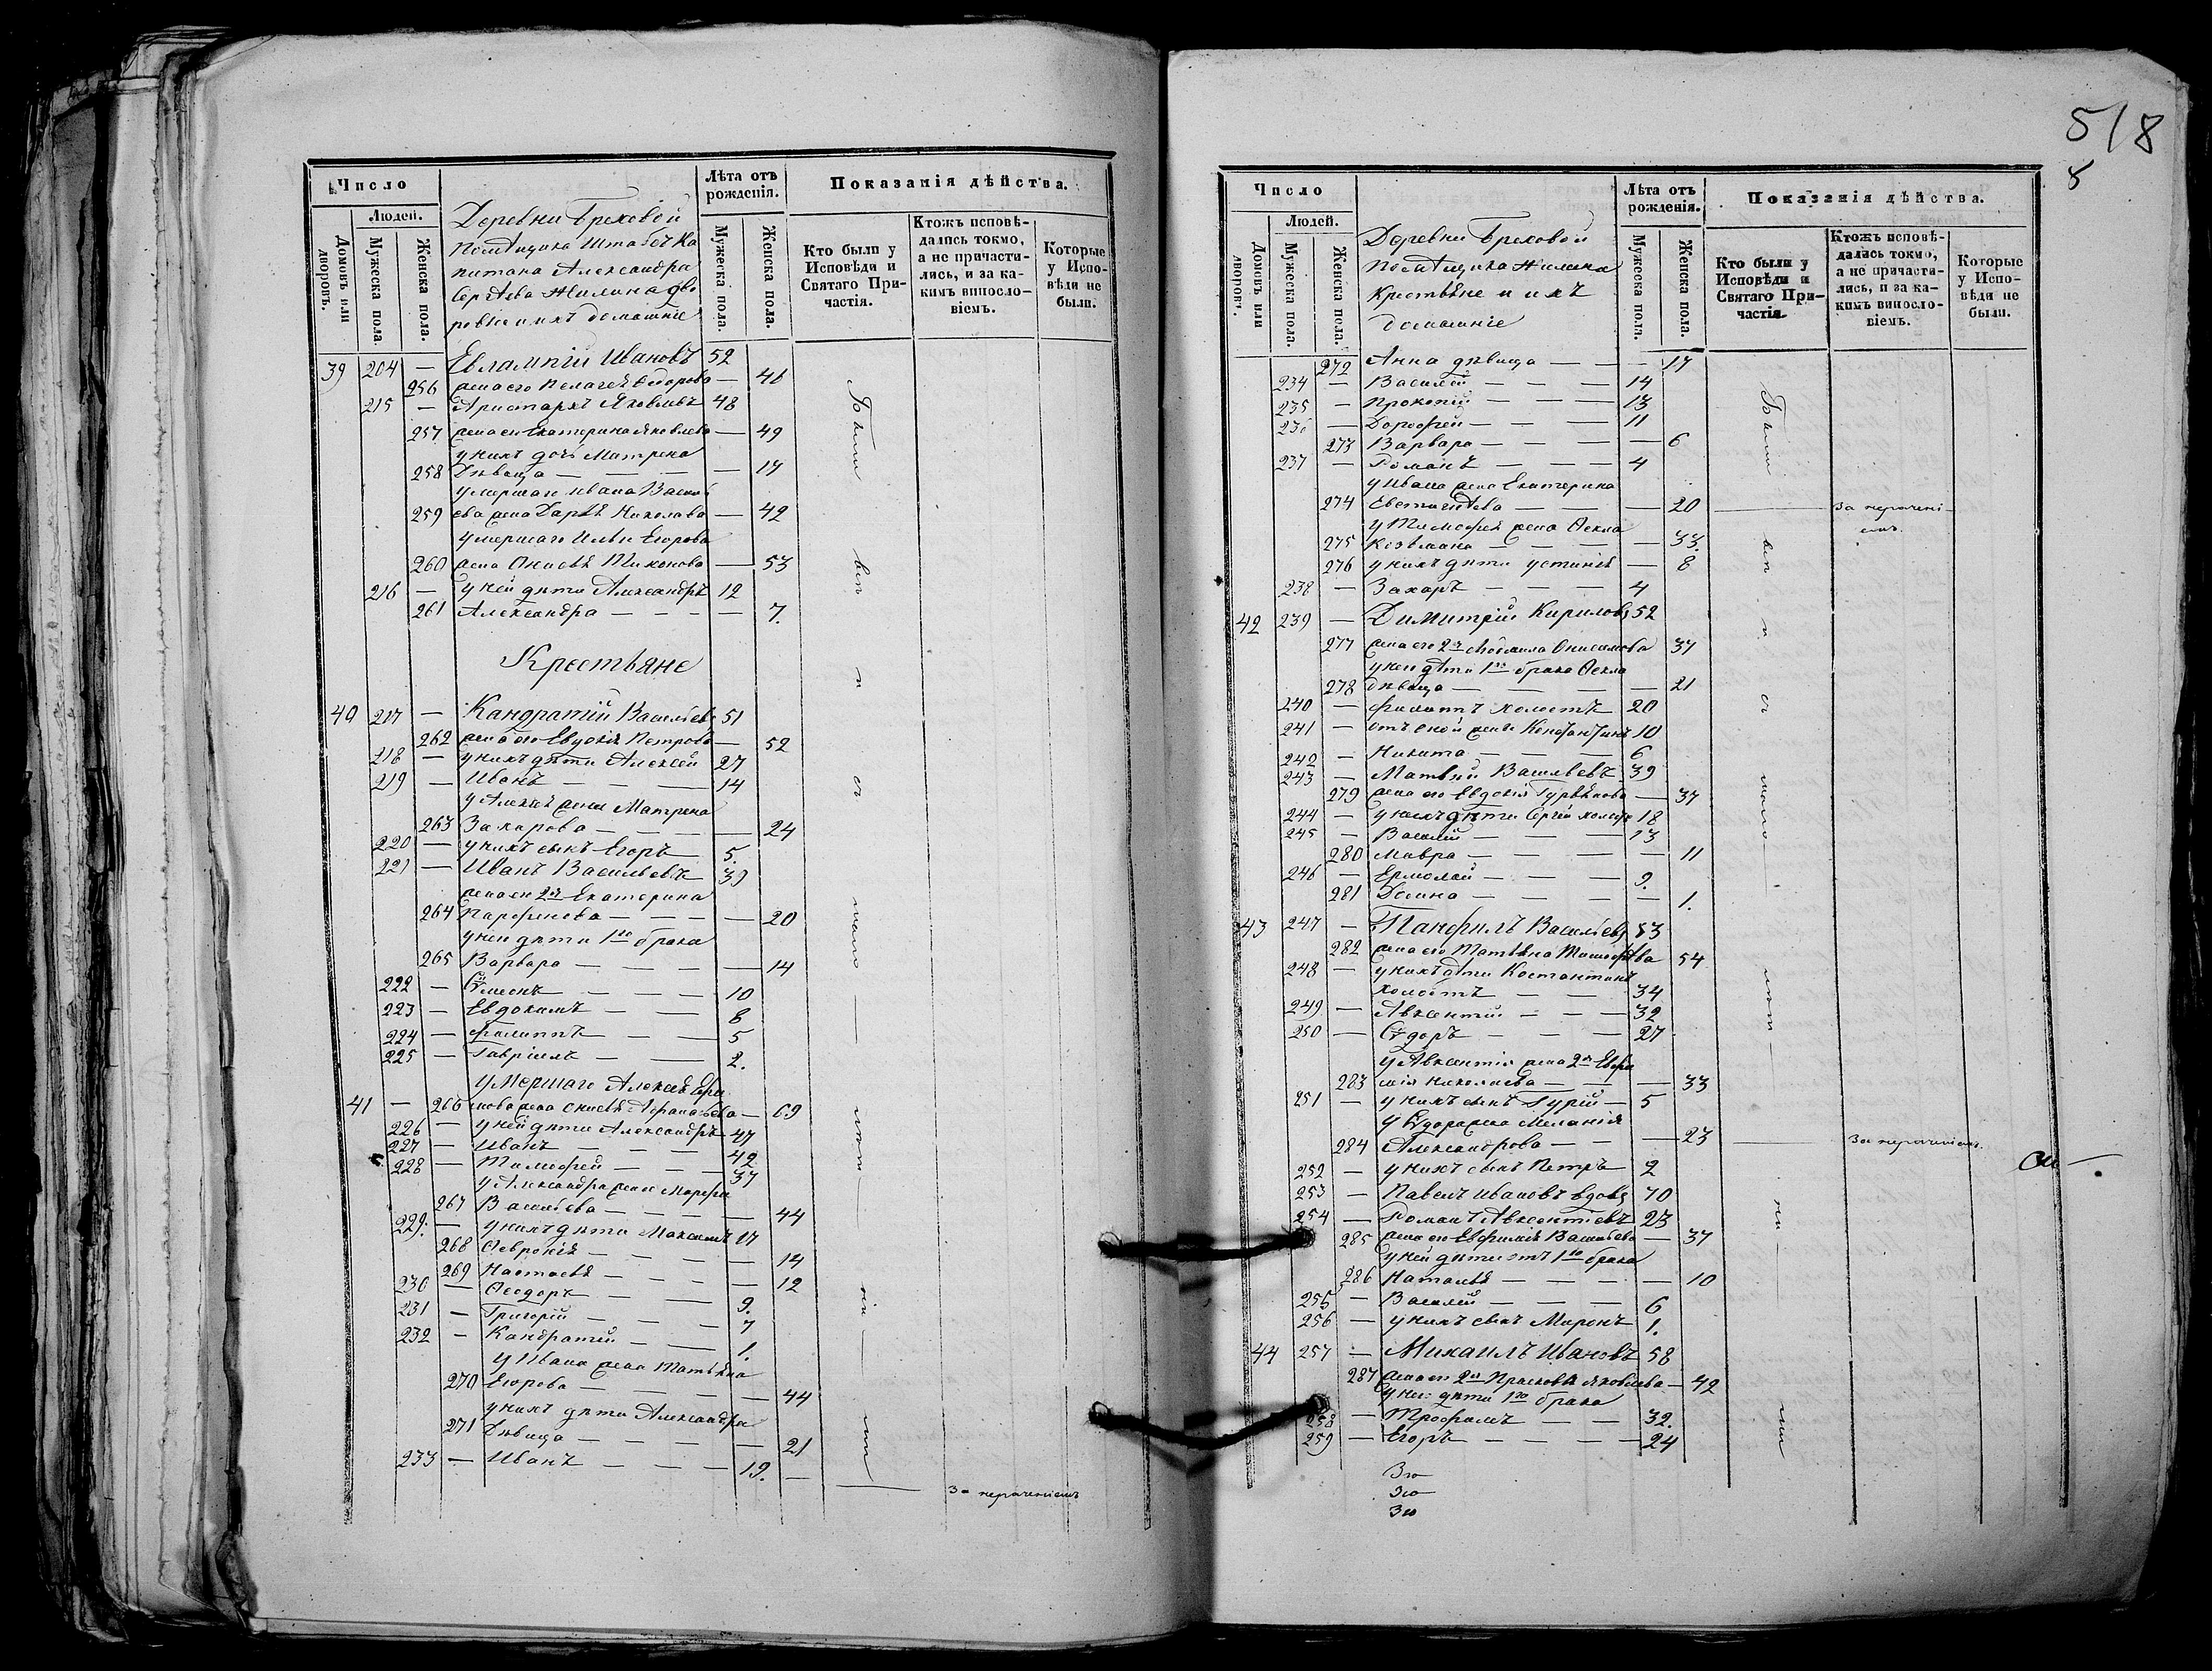 Число
Людей.
Домовъ или дворовъ.
Мужеска пола
Женска пола.
Деревни Греховой
Помѣщика Штабсъ Ка
питана Александра
Сергѣева Жилина дво
ровые и ихъ домашніе
Лѣта отъ рожденія.
Мужеска пола.
Женска пола.
Показанія дѣйства.
Кто были у Исповѣди и Святаго Причастія.
Ктожъ исповѣдались токмо, а не причастились, и за какимъ винословіемъ.
Которые у Исповѣди не были.
39 204 — Евлампій Ивановъ 52
256 жена его Пелагея Ѳедорова — 46
215 — Аристархъ Яковлевъ 48
257 жена его Екатерина Яковлева — 49
у нихъ дочь Матрена
258 Дѣвица — 17
умершаго Ивана Василь
259 ева жена Дарья Николаева — 42
умершаго Ильи Егорова
260 жена Онисья Тихонова — 53
216 — у ней дѣти Александръ 12
261 Александра — 7.
Крестьяне
40 217 — Кандратій Васильевъ 51
262 жена его Евдокія Петрова — 52
218 — у нихъ дѣти Алексей 27
219 — Иванъ — 14
у Алексея жена Матрена
263 Захарова — 24
220 — у нихъ сынъ Егоръ 5.
221 — Иванъ Васильевъ 39
жена его 2я Екатерина
264 Парфенова — 20
у ней дѣти 1го брака
265 Варвара — 14
222 — Симеонъ — 10
223 — Евдокимъ — 8
224 — Филиппъ — 5
225 — Гавріилъ — 2.
умершаго Алексея Ефи
41 — 266 мова жена Онисья Афанасьева — 69
226 — у ней дѣти Александръ 47
227 — Иванъ — 42
228 — Тимофей — 37
у Александра жена Марфа
267 Васильева — 44
229. — у нихъ дѣти Максимъ 17
268 Февронія — 14
269 Настасья — 12
230 — Ѳеодоръ — 9.
231 — Григорій — 7
232 — Кандратій — 1.
у Ивана жена Татьяна
270 Егорова — 44
у нихъ дѣти Александра
271 Дѣвица — 21
233 — Иванъ — 19. — За нераченіемъ
518
8
Число
Людей.
Домовъ или дворовъ.
Мужеска пола.
Женска пола.
Деревни Греховой
Помѣщика Жилина
Крестьяне и ихъ
домашніе
Лѣта отъ рожденія.
Мужеска пола.
Женска пола.
Показанія дѣйства.
Кто были у Исповѣди и Святаго Причастія.
Ктожъ исповѣдались токмо, а не причастились, и за какимъ винословіемъ.
Которые у Исповѣди не были.
272 Анна дѣвица — 17
234 — Василей — 14
235 — Прокопій — 13
236 — Дорофей — 11
273 Варвара — 6
237 — Романъ — 4
у Ивана жена Екатерина
274 Евстигнѣева — 20 — За нераченіемъ.
у Тимофея жена Ѳекла
275 Козьмина — 33.
276 у нихъ дѣти Устинія — 8
238 — Захаръ — 4
42 239 — Димитрій Кириловъ 52
277 жена его 2я Людмила Онисимова 37
у ней дѣти 1го брака Ѳекла
278 дѣвица — 21
240 — Филиппъ холостъ 20
241 — отъ оной жены Константинъ 10
242 — Никита — 6
243 — Матвій Васильевъ 39
279 жена его Евдокія Гурьянова — 37
244 — у нихъ дѣти Сергій холостъ 18
245 — Василій — 13
280 Мавра — 11
246 — Ермолай — 9.
281 Домна — 1.
43 247 — Панфилъ Васильевъ 53
282 жена его Татьяна Тимофѣева 54
248 — у нихъ дѣти Костантинъ
холостъ — 34
249 — Авксентій — 32
250 — Сидоръ — 27
у Авксентія жена 2я Евфи
283 мія Николаева — 33
251 — у нихъ сынъ Гурій — 5
у Сидора жена Меланія
284 Александрова — 23 — За нераченіемъ.
252 — у нихъ сынъ Петръ 2
253 — Павелъ Ивановъ вдовъ 70
254 — Романъ Авксентіевъ 23
285 жена его Евфимія Васильева — 37
у ней дѣти отъ 1го брака
286 Наталья — 10
255 — Василій — 6
256 — у нихъ сынъ Миронъ 1.
44 257 — Михаилъ Ивановъ 58
287 жена его 2я Прасковья Яковлева — 42
у него дѣти 1го брака
258 — Трофимъ — 32.
259 — Егоръ — 24